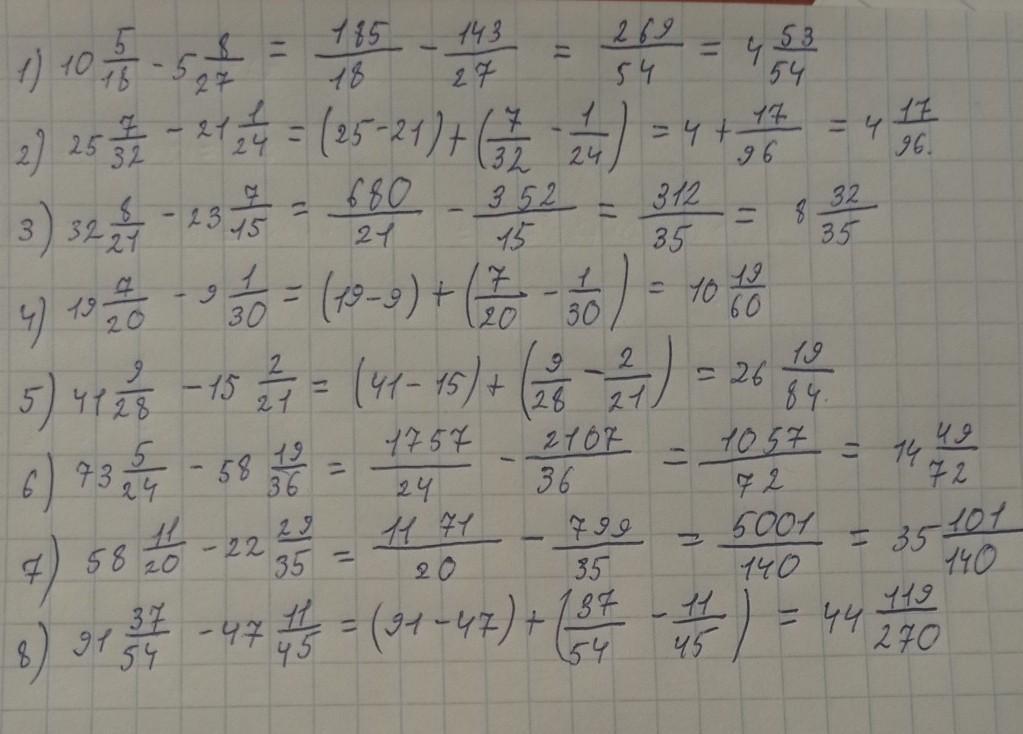 1) 10 5/18 - 5 8/27 = 185/18 - 143/27 = 269/54 = 4 53/54
2) 25 7/32 - 21 1/24 = (25-21) + (7/32 - 1/24) = 4 + 17/96 = 4 17/96.
3) 32 8/21 - 23 7/15 = 680/21 - 352/15 = 312/35 = 8 32/35
4) 19 7/20 - 9 1/30 = (19-9) + (7/20 - 1/30) = 10 19/60
5) 41 9/28 - 15 2/21 = (41-15) + (9/28 - 2/21) = 26 19/84.
6) 73 5/24 - 58 19/36 = 1757/24 - 2107/36 = 1057/72 = 14 49/72
7) 58 11/20 - 22 29/35 = 1171/20 - 799/35 = 5001/140 = 35 101/140
8) 91 37/54 - 47 11/45 = (91-47) + (37/54 - 11/45) = 44 119/270